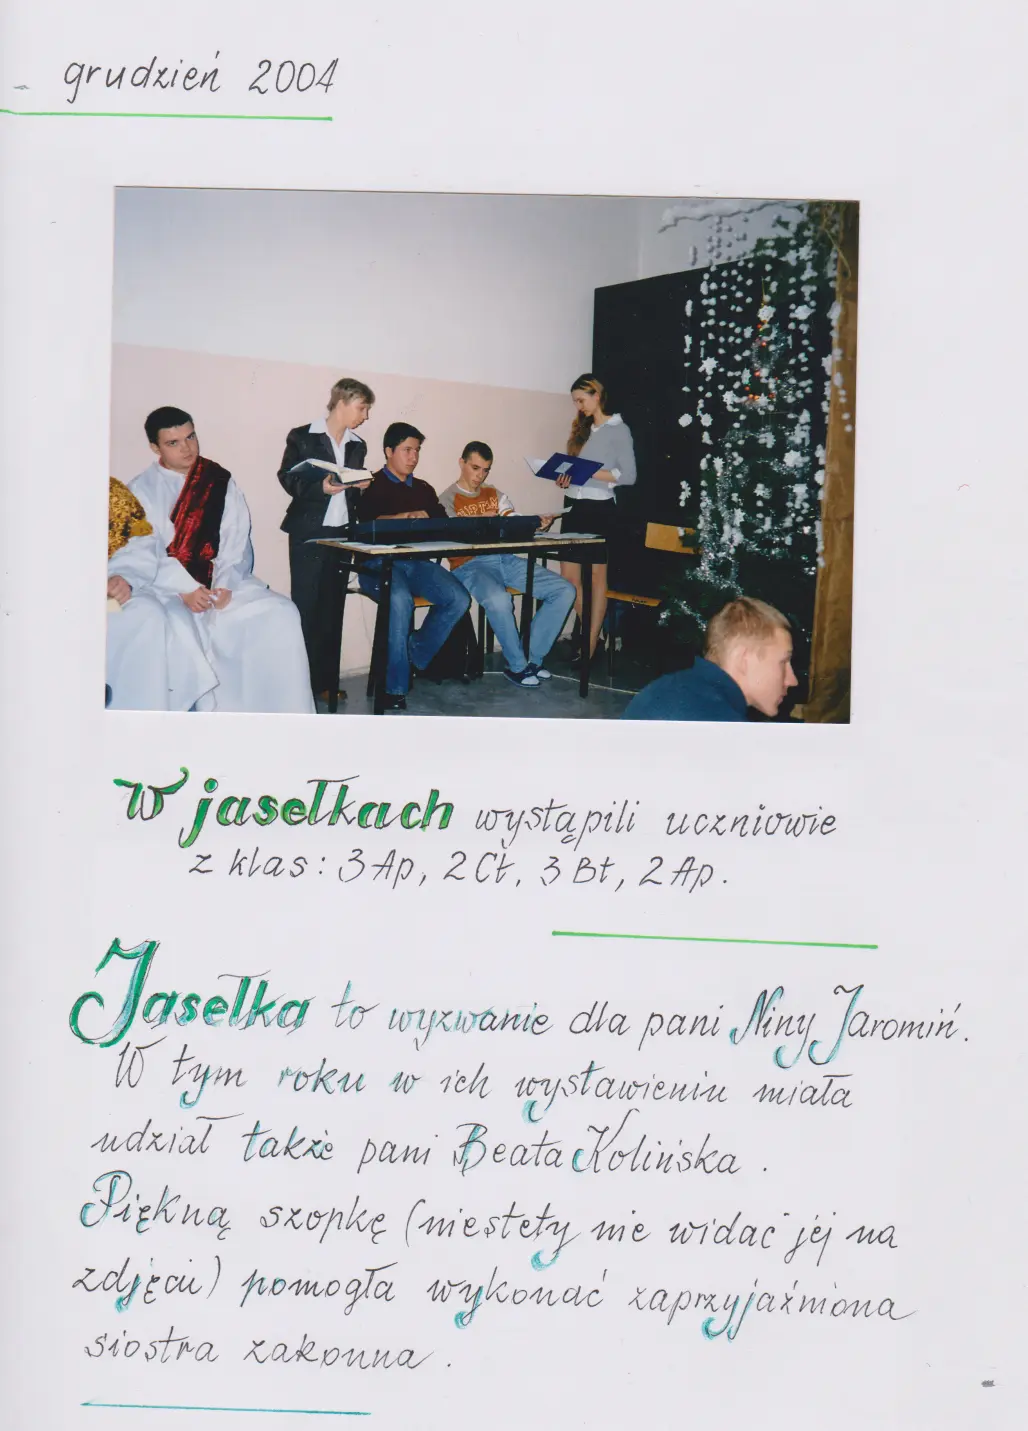 grudzień 2004
W jasełkach wystąpili uczniowie
z klas: 3 Ap, 2 Ct, 3 Bt, 2 Ap.
Jasełka to wyzwanie dla pani Niny Jaromiń.
W tym roku w ich wystawieniu miała
udział także pani Beata Kolińska.
Piękną szopkę (niestety nie widać jej na
zdjęciu) pomogła wykonać zaprzyjaźniona
siostra zakonna.